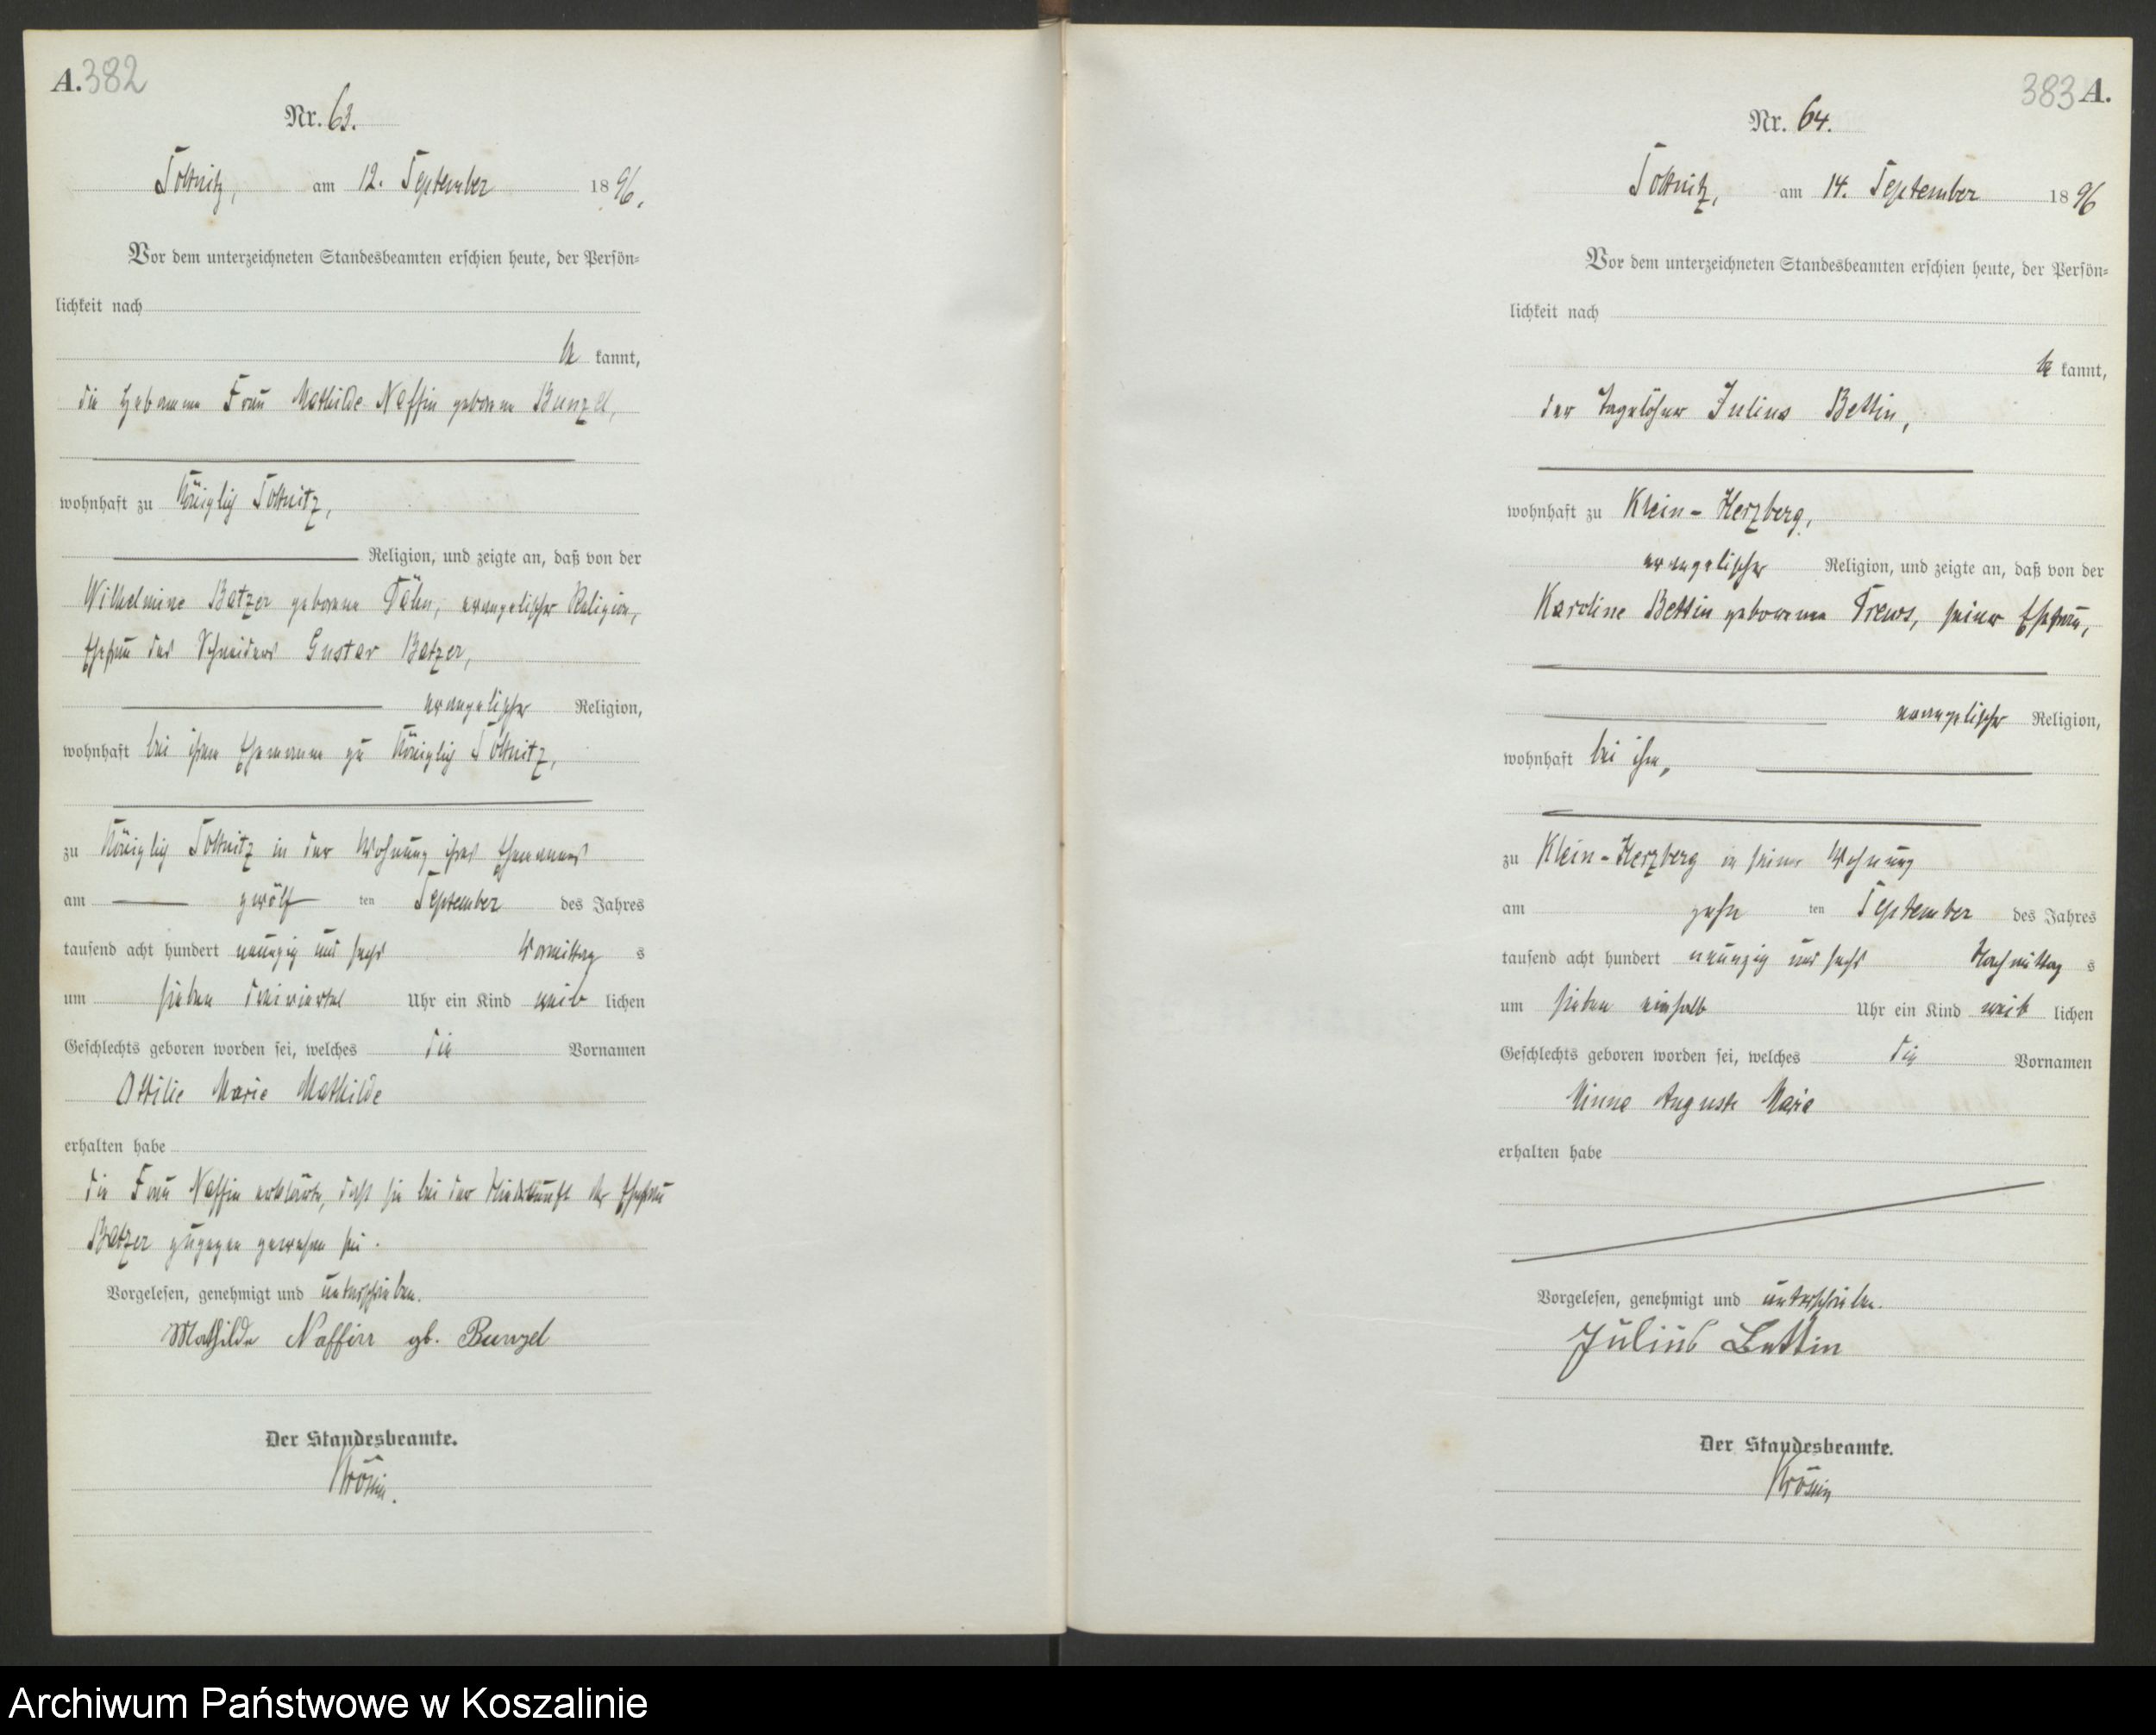 A. 382
Nr. 63.
Soltnitz, am 12. September 1896.
Vor dem unterzeichneten Standesbeamten erschien heute, der Persön-
lichkeit nach
be kannt,
die Hebamme Frau Mathilde Naffin geborene Bunzel,
wohnhaft zu Königlich Soltnitz,
Religion, und zeigte an, daß von der
Wilhelmine Batzer geborene evangelischer Religion,
Ehefrau des Schneiders Gustav Batzer,
evangelischer Religion,
wohnhaft bei ihrem Ehemanne zu Königlich Soltnitz,
zu Königlich Soltnitz in der Wohnung ihres Ehemannes
am zwölf ten September des Jahres
tausend acht hundert neunzig und sechs Vormittag s
um sieben dreiviertel Uhr ein Kind weib lichen
Geschlechts geboren worden sei, welches die Vornamen
Ottilie Marie Mathilde
erhalten habe
die Frau Naffin erklärte, daß sie bei der Niederkunft der Ehefrau
Batzer zugegen gewesen sei.
Vorgelesen, genehmigt und unterschrieben.
Mathilde Naffin gb. Bunzel
Der Standesbeamte.
383 A.
Nr. 64.
Soltnitz, am 14. September 1896
Vor dem unterzeichneten Standesbeamten erschien heute, der Persön-
lichkeit nach
be kannt,
der Tagelöhner Julius Bettin,
wohnhaft zu Klein-Herzberg,
evangelischer Religion, und zeigte an, daß von der
Karoline Bettin geborenen seiner Ehefrau,
evangelischer Religion,
wohnhaft bei ihm,
zu Klein-Herzberg in seiner Wohnung
am zehn ten September des Jahres
tausend acht hundert neunzig und sechs Nachmittag s
um sieben einhalb Uhr ein Kind weib lichen
Geschlechts geboren worden sei, welches die Vornamen
Minna Auguste Marie
erhalten habe
Vorgelesen, genehmigt und unterschrieben.
Julius Bettin
Der Standesbeamte.
Archiwum Państwowe w Koszalinie